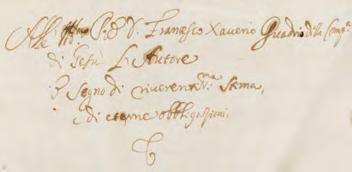 Al M.to R.do P. D. Francesco Xaverio Quadrio della Comp.a
di Gesù L'Autore
P Segno di riverent.ma Stima,
di eterne obbligazioni.